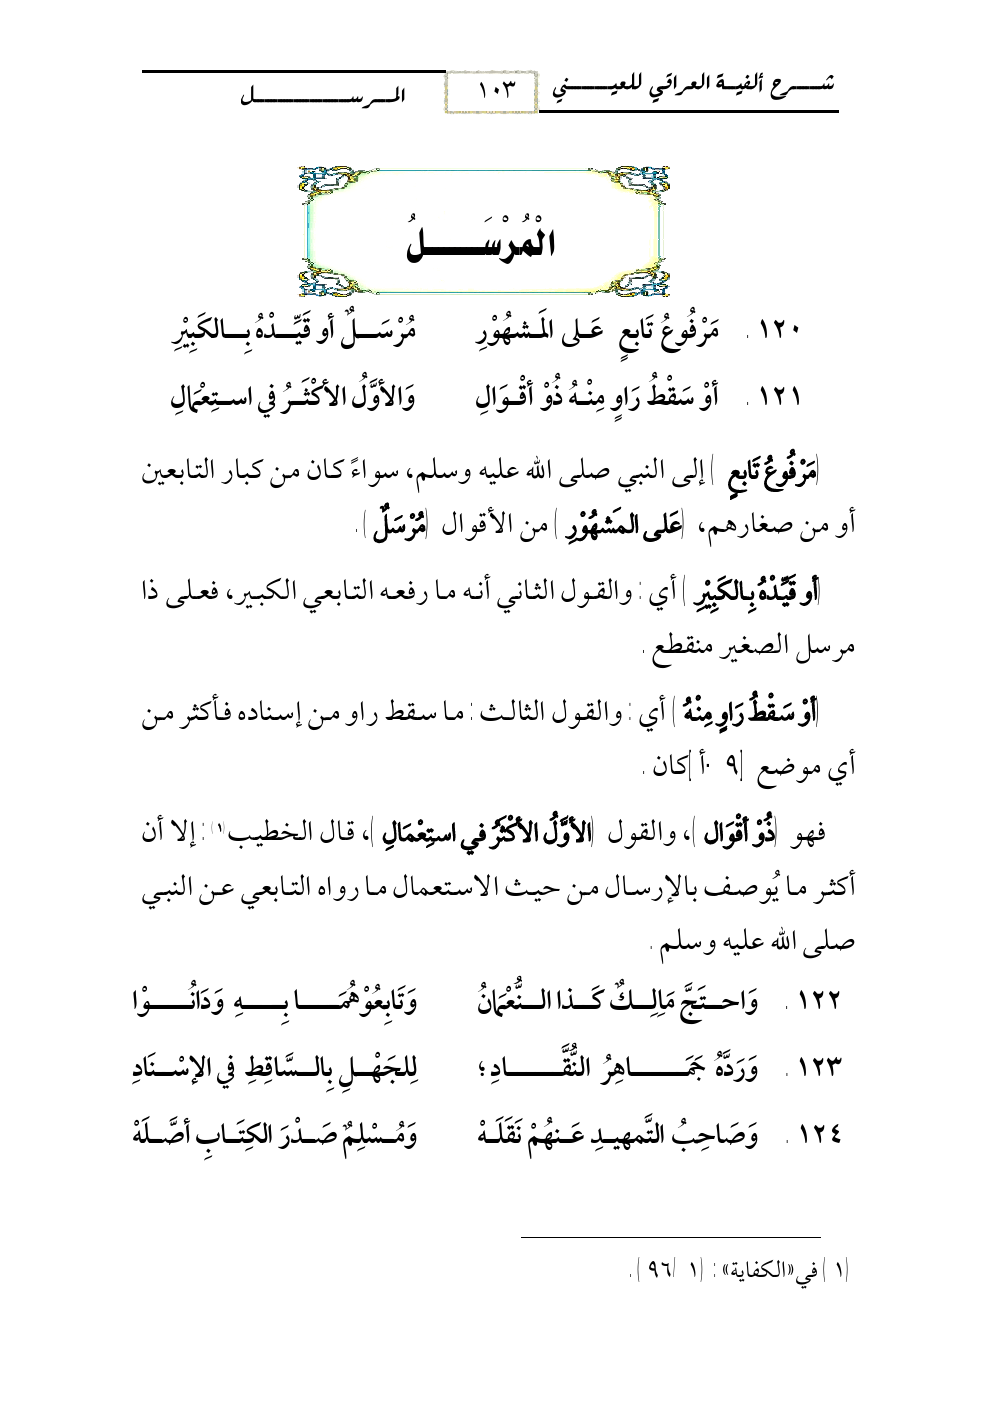 شــــرح ألفيــة العراقي للعيــــــني
١٠٣
المـــرســـــــــــــل
الْمُرْسَـــــلُ
١٢٠. مَرْفُوعُ تَابعٍ عَـلى المَـشهُوْرِ مُرْسَـــلٌ أو قَيِّـــدْهُ بِـــالكَبِيْرِ
١٢١. أوْ سَقْطُ رَاوٍ مِنْـهُ ذُوْ أقْـوَالِ وَالأوَّلُ الأكْثَـرُ في اسـتِعْمَالِ
(مَرْفُوعُ تَابعٍ) إلى النبي صلى الله عليه وسلم، سواءً كان من كبار التابعين
أو من صغارهم، (عَلى المَشهُوْرِ) من الأقوال (مُرْسَلٌ).
(أو قَيِّدْهُ بِالكَبِيْرِ) أي: والقول الثاني أنه ما رفعه التابعي الكبير، فعلى ذا
مرسل الصغير منقطع.
(أوْ سَقْطُ رَاوٍ مِنْهُ) أي: والقول الثالث: ما سقط راو من إسناده فأكثر من
أي موضع [٩٠أ] كان.
فهو (ذُوْ أقْوَال)، والقول (الأوَّلُ الأكْثَرُ في استِعْمَالِ)، قال الخطيب(١): إلا أن
أكثر ما يُوصف بالإرسال من حيث الاستعمال ما رواه التابعي عن النبي
صلى الله عليه وسلم.
١٢٢. وَاحـتَجَّ مَالِـكٌ كَـذا الـنُّعْمَانُ وَتَابِعُوْهُمَـــا بِـــهِ وَدَانُـــوْا
١٢٣. وَرَدَّهُ جَمَــــاهِرُ النُّقَّــــادِ؛ لِلجَهْـلِ بِالـسَّاقِطِ في الإسْـنَادِ
١٢٤. وَصَاحِبُ التَّمهيـدِ عَـنهُمْ نَقَلَـهْ وَمُـسْلِمٌ صَـدْرَ الكِتَـابِ أصَّـلَهْ
(١) في «الكفاية»: (١/ ٩٦).